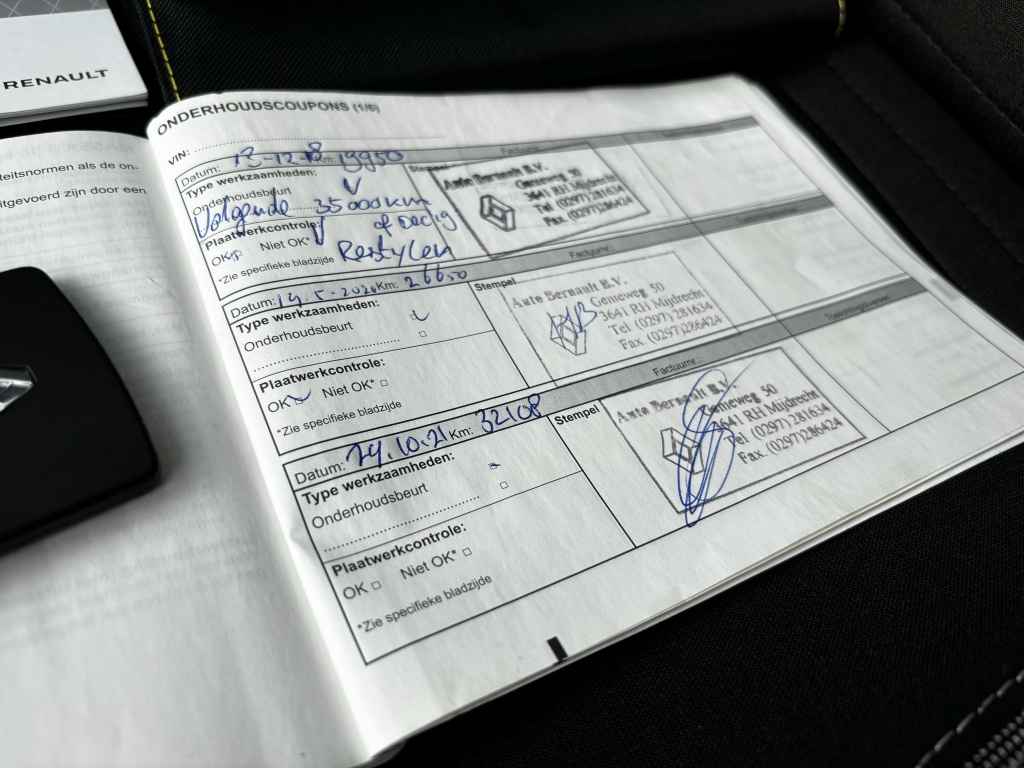 RENAULT
teitsnormen als de on-
itgevoerd zijn door een
ONDERHOUDSCOUPONS (1/6)
VIN:
Datum: 13-12-18 Km: 19950
Type werkzaamheden:
Onderhoudsbeurt
Volgende 35000km
Plaatwerkcontrole:
OK Niet OK*
*Zie specifieke bladzijde
Factuurnr.:
Stempel
Auto Bernault B.V.
Gemeweg 50
3641 RH Mijdrecht
Tel (0297)281634
Fax (0297)286424
Datum: 14-5-2020 Km: 26650
Type werkzaamheden:
Onderhoudsbeurt
Plaatwerkcontrole:
OK Niet OK*
*Zie specifieke bladzijde
Factuurnr.:
Stempel
Auto Bernault B.V.
Gemeweg 50
3641 RH Mijdrecht
Tel (0297)281634
Fax (0297)286424
Datum: 29.10.21 Km: 32108
Type werkzaamheden:
Onderhoudsbeurt
Plaatwerkcontrole:
OK Niet OK*
*Zie specifieke bladzijde
Factuurnr.:
Stempel
Auto Bernault B.V.
Gemeweg 50
3641 RH Mijdrecht
Tel (0297)281634
Fax (0297)286424